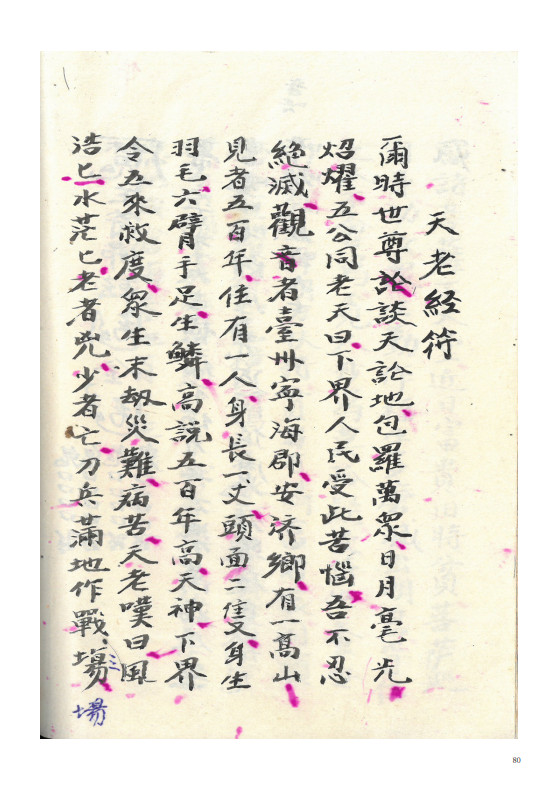 天老經符
爾時世尊訟談天訟地包羅萬眾日月毫光
炤耀五公同老天曰下界人民受此苦惱吾不忍
絕滅觀音者臺州寧海郡安济鄉有一高山
見者五百年住有一人身長一丈頭面二隻又身生
羽毛六臂手足生鱗高説五百年高天神下界
令五來救度眾生末刼災難病苦天老嘆曰風
浩匕水茫匕老者兇少者亡刀兵滿地作戰場
三
場
80